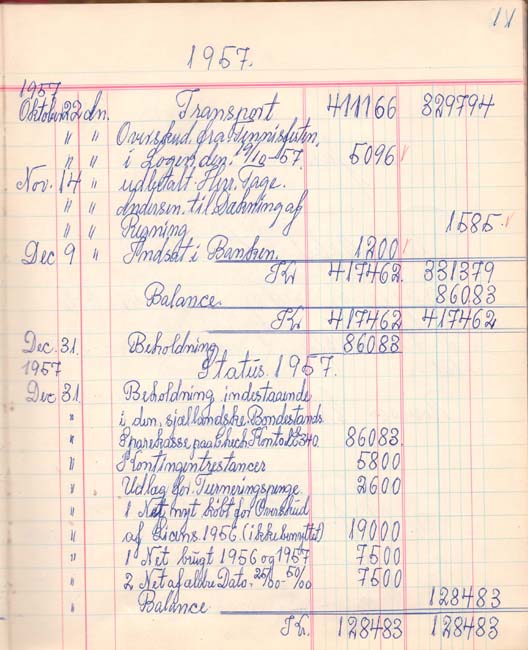 11
1957.
1957
Oktober 22 dn. Transport 411166 329794
" " Overskud fra Tennisfesten,
" " i Logen, den 19/10-57. 5096
Nov. 14 " udbetalt Herr. Tage.
" " Andersen. til Dækning af
" " Regning 1585.
Dec 9 " Indsat i Banken. 1200
Kr 417462. 331379
Balance. 86083
Kr 417462 417462
Dec. 31. Beholdning 86083
1957 Status. 1957.
Dec 31. Beholdning indestaaende
" i den sjællandske Bondestands
" Sparekasse paa Check Konto 340. 86083.
" Kontingentrestancer 5800
" Udlag for Turneringspenge. 2600
" 1 Net nyt købt for Overskud
af Licens 1956 (ikke benyttet) 19000
" 1 Net brugt 1956 og 1957 7500
" 2 Net af ældre Dato. 25/00-50/00 7500
" Balance 128483
Kr. 128483 128483